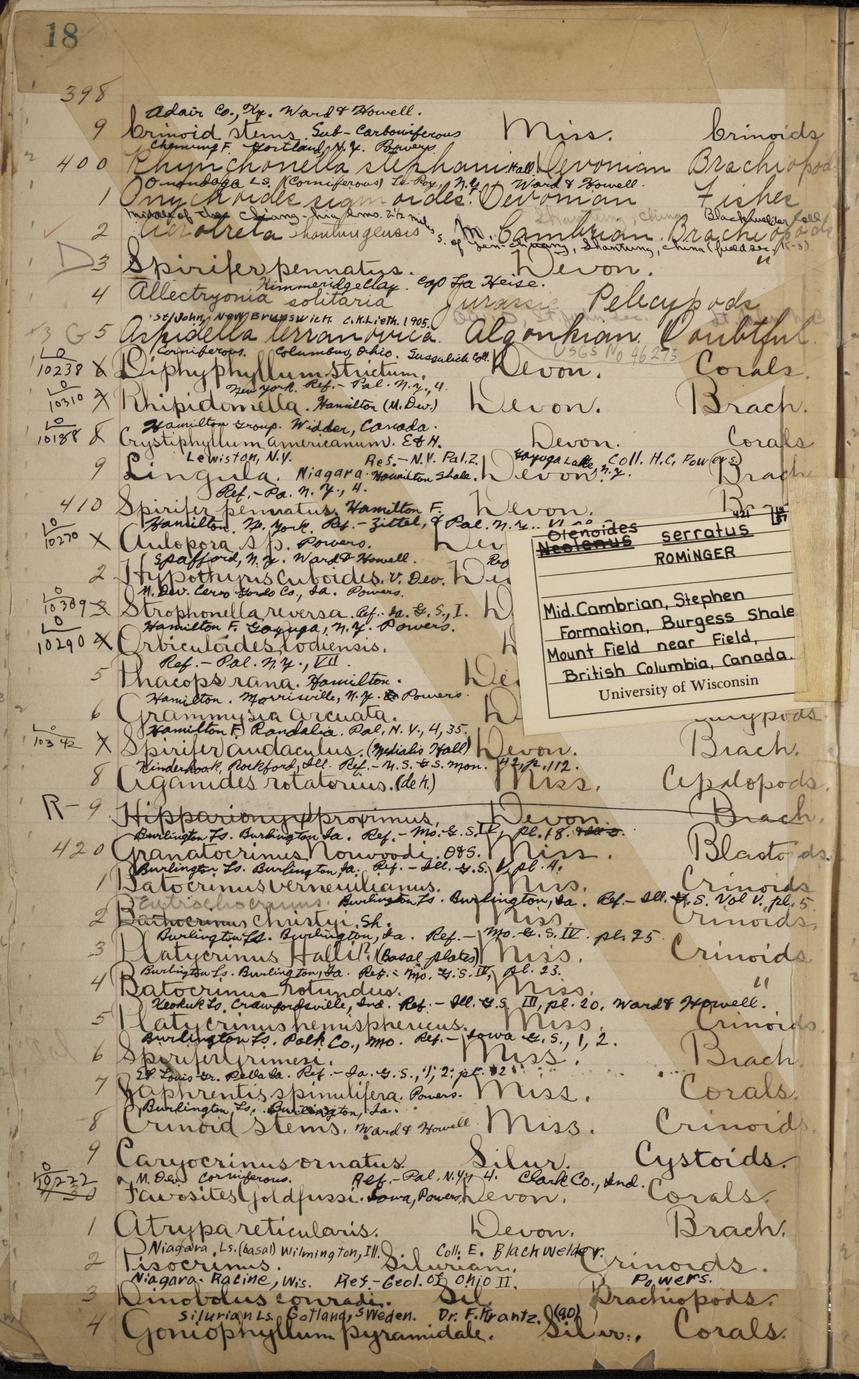 18
398
Adair Co., Ky. Ward & Howell.
9 Crinoid stems. Sub-Carboniferous Miss. Crinoids
Chemung F. Cortland, N.Y. Powers
400 Rhynchonella stephani Hall. Devonian Brachiopod
Onondaga Ls. (Corniferous) Le Roy, N.Y. Ward & Howell.
1 Onychoides sigmoides. Devonian Fishes
2 Acrotreta shantungensis M. Cambrian Brachiopods
D 3 Spirifer pennatus. Devon. "
Kimmeridge Clay. Cap La Heise.
4 Allectryonia solitaria Jurassic Pelecypods
St John, New Brunswick. C.K. Leith. 1905.
G 5 Aspidella terranovica. Algonkian Doubtful
USGS No 46273
Corniferous. Columbus, Ohio. Coll.
10238 X Diphyphyllum strictum. Devon. Corals.
New York. Ref.- Pal. N.Y., 4.
10310 X Rhipidomella. Hamilton (M. Dev.) Devon. Brach.
Hamilton Group. Widder, Canada.
10188 8 Crystiphyllum americanum. E & H. Devon. Corals
Lewiston, N.Y. Ref.- N.Y. Pal. 2. Cayuga Lake, N.Y. Coll. H.C. Powers
9 Lingula. Niagara. Hamilton Shale. Devon. Brach
Ref.- Pa. N.Y., 4.
410 Spirifer pennatus, Hamilton F. Devon. B
Hamilton. N. York. Ref.- Zittel, & Pal. N.Y.
10270 X Aulopora sp. Powers. Dev
Spafford, N.Y. Ward & Howell.
2 Hypothyris cuboides. V. Dev. D
M. Dev. Cerro Gordo Co., Ia. Powers.
10309 X Strophonella reversa. Ref. Ia. G.S., I. D
Hamilton F. Cayuga, N.Y. Powers.
10290 X Orbiculoides lodiensis.
Ref.- Pal. N.Y., VII
5 Phacops rana. Hamilton. De
Hamilton. Morrisville, N.Y. Powers.
6 Grammysia arcuata. D
Hamilton F.) Randalia. Pal, N.Y., 4, 35.
10342 X Spirifer audaculus. (Medialis Hall) Devon. Brach.
Kinderhook, Rockford, Ill. Ref.- U.S.G.S. Mon. 42, p. 112.
8 Aganides rotatorius. (de K.) Miss. Cephalopods.
R- 9 Hipparionyx proximus. Devon. Brach.
Burlington Ls. Burlington Ia. Ref.- Mo. G.S. IV, pl. 18.
420 Granatocrinus Norwoodi. O&S. Miss. Blastoids.
Burlington Ls. Burlington, Ia. Ref.- Ill. G.S. V, pl. 4.
1 Batocrinus verneuilianus. Miss. Crinoids
Burlington Ls. Burlington, Ia. Ref- Ill. G.S. Vol V, pl. 5
2 Bathocrinus christyi, Sh. Miss. Crinoids.
Burlington Ls. Burlington, Ia. Ref.- Mo. G.S. IV pl. 25
3 Platycrinus Halli. (Basal plates) Miss. Crinoids
Burlington Ls. Burlington, Ia. Ref.- Mo. G.S. IV, pl. 23.
4 Batocrinus rotundus. Miss. "
Keokuk Ls. Crawfordsville, Ind. Ref.- Ill. G.S. III, pl. 20. Ward & Howell.
5 Platycrinus hemisphericus. Miss. Crinoids.
Burlington Ls. Polk Co., Mo. Ref.- Iowa G.S., 1, 2.
6 Spirifer Grimesi. Miss. Brach
St Louis Gr. Pella Ia. Ref.- Ia. G.S., 1, 2: pt.
7 Zaphrentis spinulifera. Powers. Miss. Corals.
Burlington, Ls. Burlington, Ia.
8 Crinoid stems. Ward & Howell Miss. Crinoids
9 Caryocrinus ornatus. Silur. Cystoids.
M. Dev. Corniferous. Ref.- Pal. N.Y. 4. Clark Co., Ind.
10222 Favosites Goldfussi. Iowa, Powers, Devon. Corals.
1 Atrypa reticularis. Devon. Brach.
Niagara. Ls. (basal) Wilmington, Ill. Coll. E. Blackwelder.
2 Pisocrinus. Silurian. Crinoids.
Niagara. Racine, Wis. Ref.- Geol. of Ohio II. Powers.
3 Dinobolus conradi. Sil. Brachiopods.
Silurian Ls. Gotland, Sweden. Dr. F. Krantz. (90)
4 Goniophyllum pyramidale. Silur. Corals.
Olenoides
Neolenus serratus
ROMINGER
Mid. Cambrian, Stephen
Formation, Burgess Shale
Mount Field near Field,
British Columbia, Canada.
University of Wisconsin